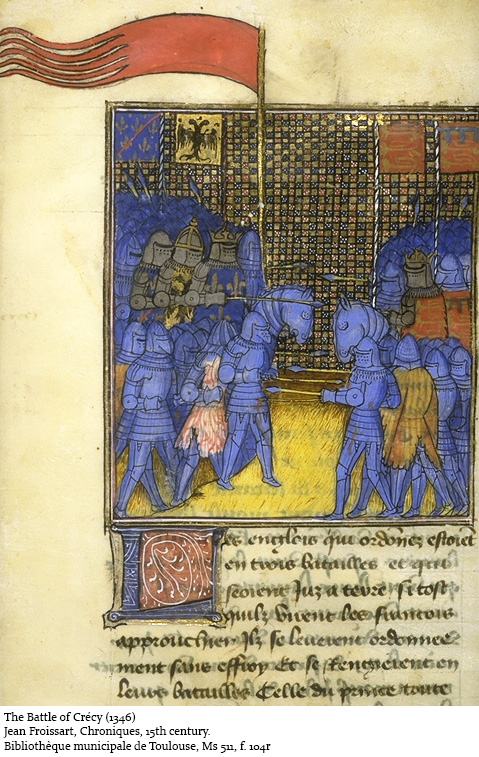 Les englois qui ordonez estoiēt
en trois batailles et qui
seoient Juz a terre si tost
quilz virent les francois
approuchier Ilz se leuerent ordonnee
ment sans effroy Et se Rengierent en
leurs batailles Celle du prince toute
The Battle of Crécy (1346)
Jean Froissart, Chroniques, 15th century.
Bibliothèque municipale de Toulouse, Ms 511, f. 104r